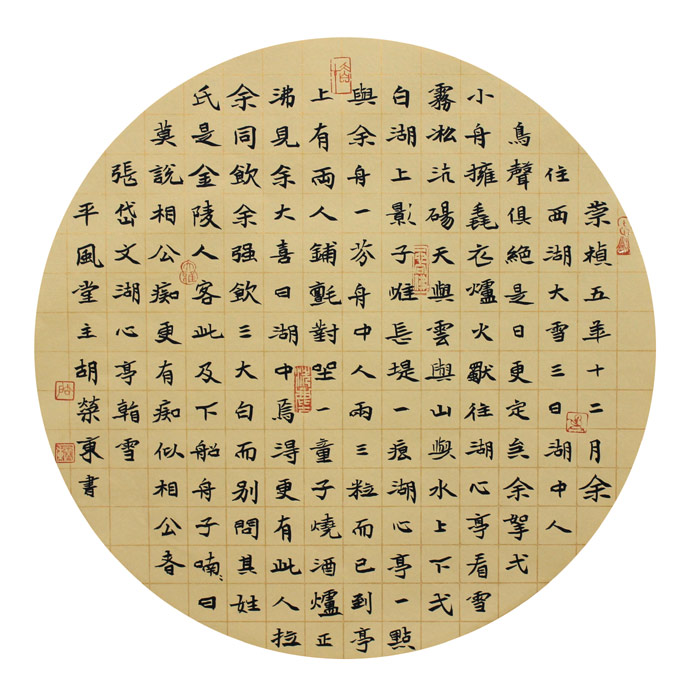 崇禎五年十二月余
住西湖大雪三日湖中人
鳥聲俱絕是日更定矣余拏弌
小舟擁毳衣爐火獨往湖心亭看雪
霧凇沆碭天與雲與山與水上下弌
白湖上影子惟長堤一痕湖心亭一點
與余舟一芥舟中人兩三粒而已到亭
上有兩人鋪氈對坐一童子燒酒爐正
沸見余大喜曰湖中焉得更有此人拉
余同飲余强飲三大白而別問其姓
氏是金陵人客此及下船舟子喃〻曰
莫說相公痴更有痴似相公者
張岱文湖心亭看雪
平風堂主胡榮東書